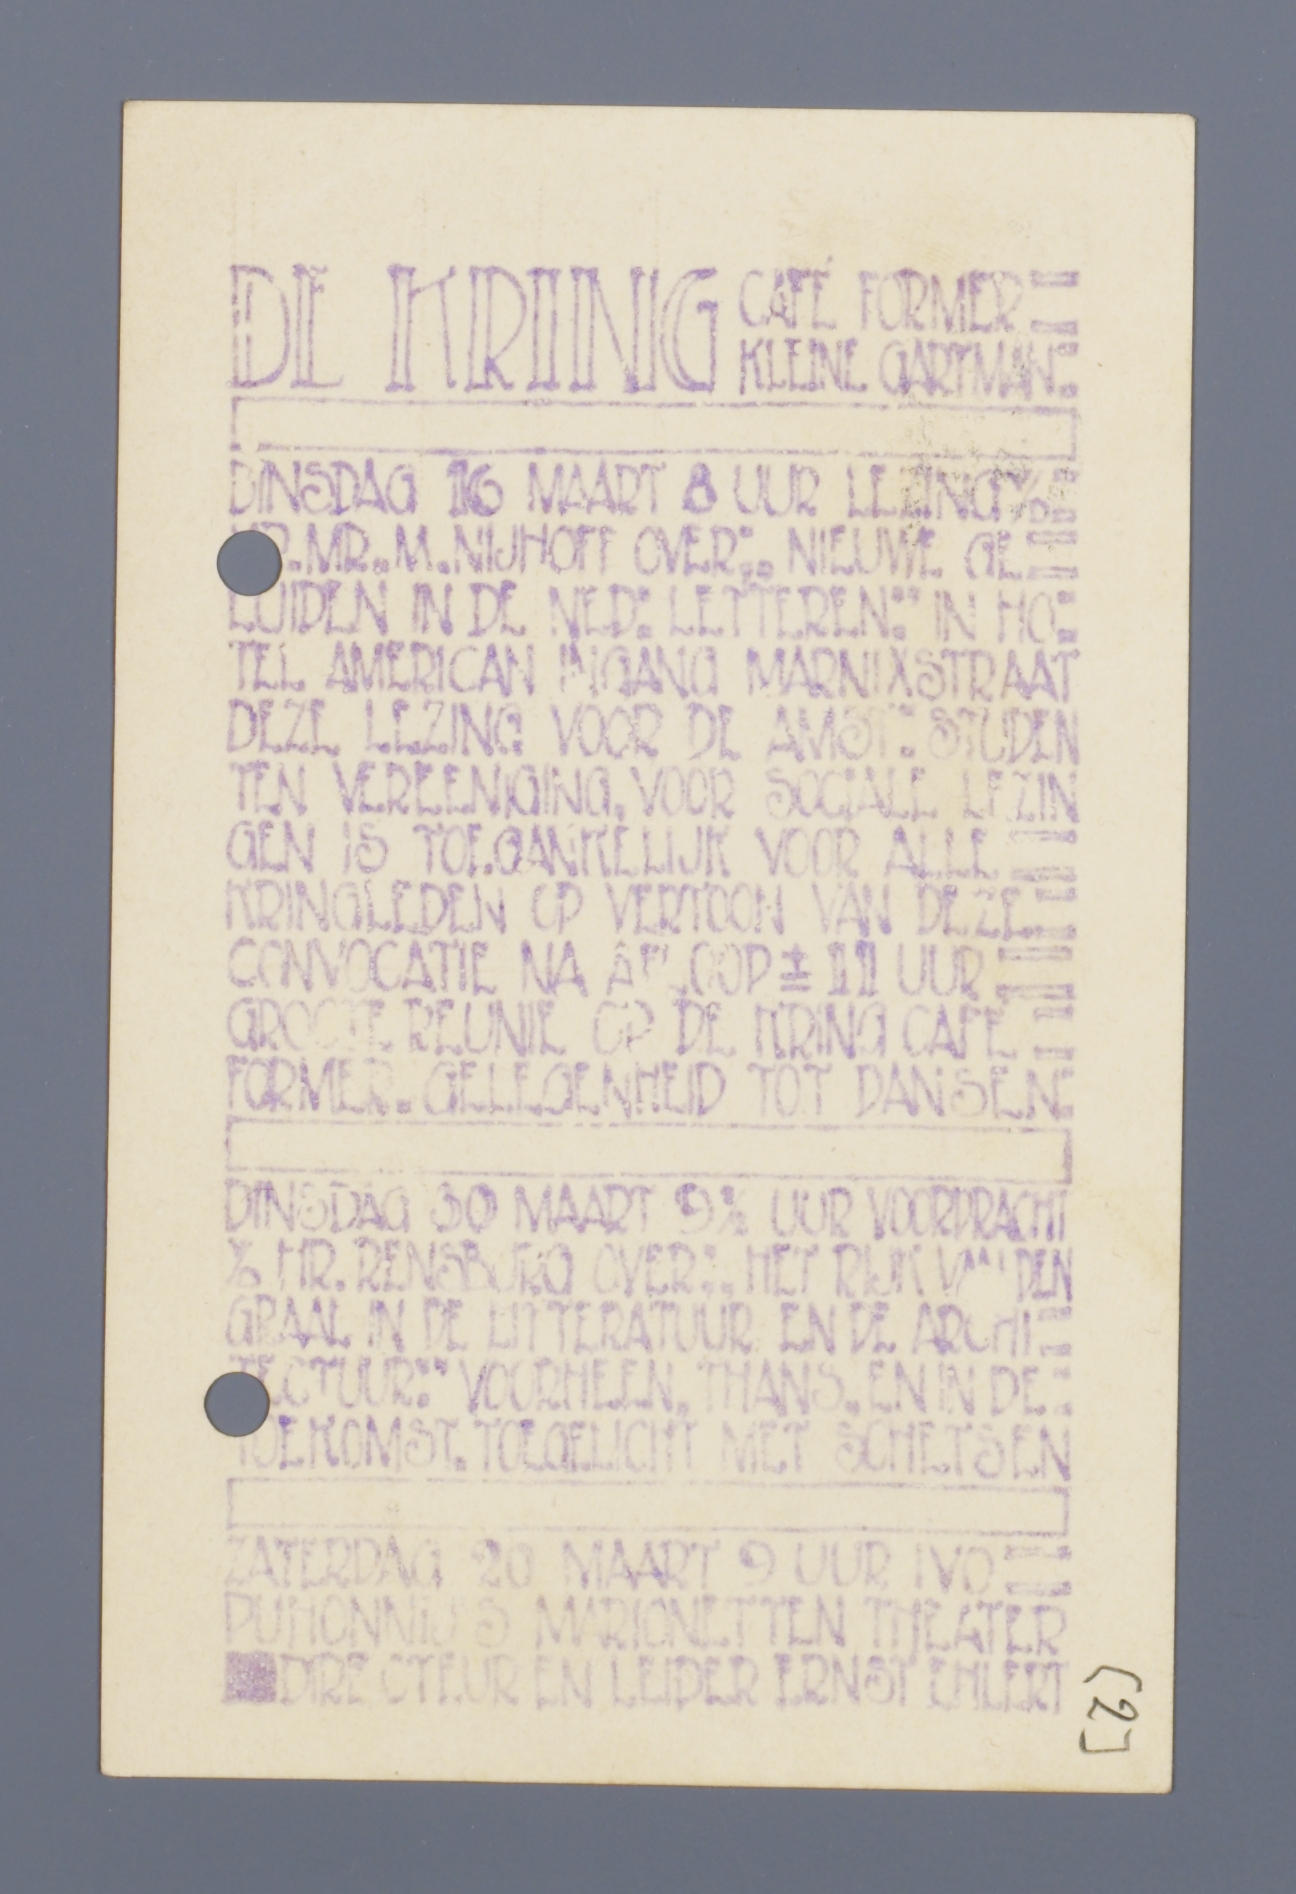 DE KRING CAFÉ FORMER
KLEINE GARTMAN:
DINSDAG 16 MAART 8 UUR LEZING %
MR. M. NIJHOFF OVER:,, NIEUWE GE
LUIDEN IN DE NED: LETTEREN:" IN HO:
TEL AMERICAN INGANG MARNIXSTRAAT
DEZE LEZING VOOR DE AMST: STUDEN
TEN VEREENIGING, VOOR SOCIALE LEZIN
GEN IS TOEGANKELIJK VOOR ALLE
KRINGLEDEN OP VERTOON VAN DEZE
CONVOCATIE NA AFLOOP ± 11 UUR
GROOTE REUNIE OP DE KRING CAFE
FORMER. GELEGENHEID TOT DANSEN:
DINSDAG 30 MAART 9½ UUR VOORDRACHT
% HR. RENSBURG OVER:,, HET RIJK VAN DEN
GRAAL IN DE LITTERATUUR EN DE ARCHI
TECTUUR:" VOORHEEN, THANS, EN IN DE
TOEKOMST. TOEGELICHT MET SCHETSEN
ZATERDAG 20 MAART 9 UUR IVO
PUHONNIJ'S MARIONETTEN THEATER
DIRECTEUR EN LEIDER ERNST EHLERT
(2]